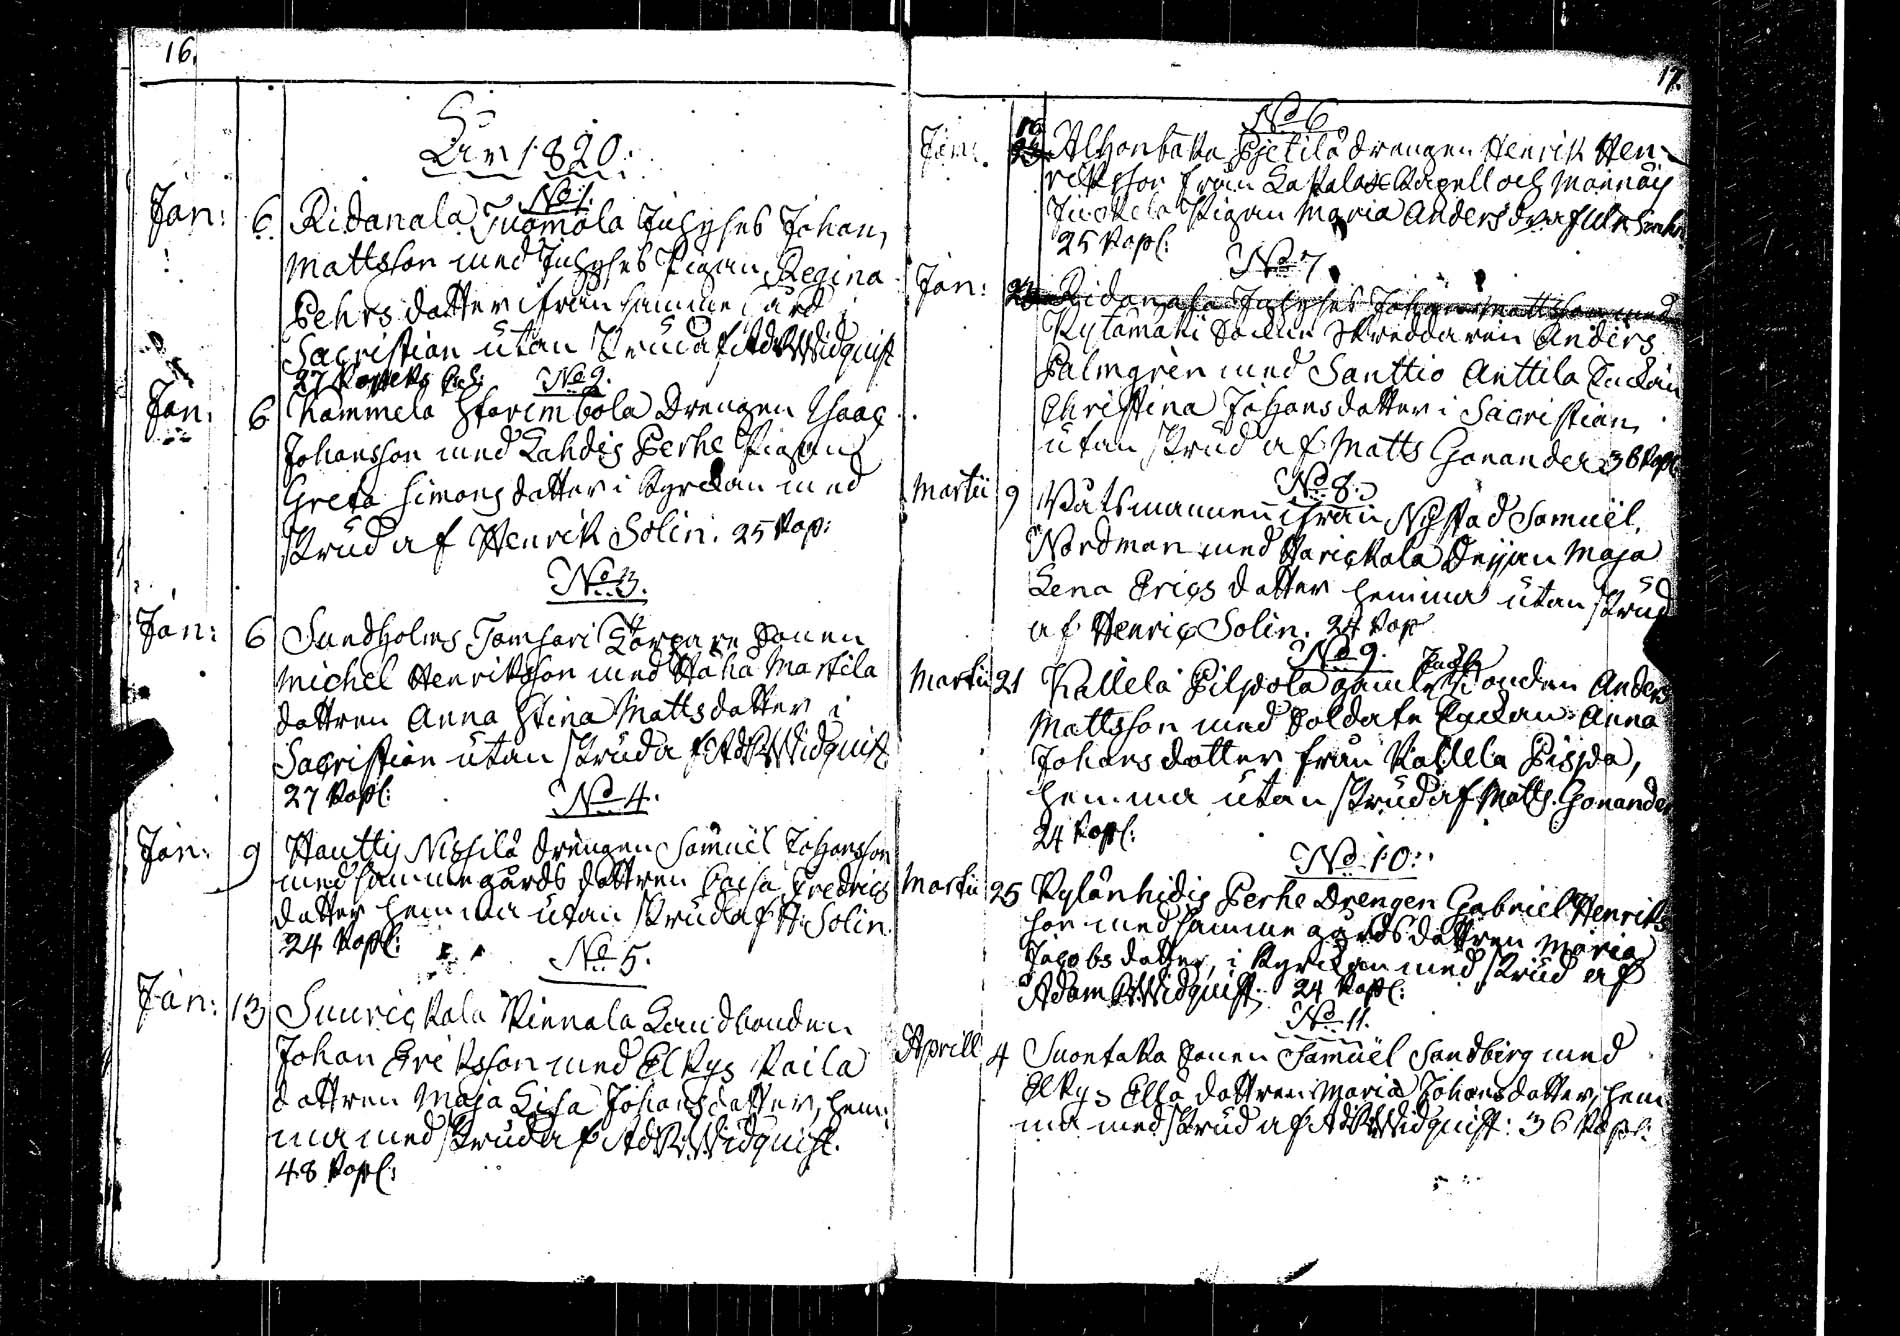 16.
År 1820.
No 1.
Jan: 6 Ridanala Tuomola Inhyses Johan
Mattsson med Inhyses Pigan Regina
Pehrs dotter ifrån samme gård i
Sacristian utan skrud af Ad Widquist
27 Kopek
No 2.
Jan: 6 Kammela drengen Isaac
Johansson med Lahdis Perhe Pigan
Greta Simons dotter i Kyrckan med
skrud af Henrik Solin. 25 Kop:
No 3.
Jan: 6 Sundholms Tomsari Torpare Sonen
Michel Henriksson med Haha Martila
dottren Anna Stina Matts dotter i
Sacristian utan skrud af Ad Widquist
27 Kopk:
No 4.
Jan: 9 Hauttis Nissilä drengen Samuel Johansson
med samme gårds dottren Caisa Fredrics
dotter hemma utan skrud af H. Solin.
24 Kopk:
No 5.
Jan: 13 Suurickala Pinnala Landbonden
Johan Eriksson med Elkys Kaila
dottren Maja Lisa Johans dotter, hem-
ma med skrud af Ad Widquist.
48 Kopk:
17.
No 6
Jan: Alhonbaka Pietilä drengen Henrik Hen-
riksson från Capell och Männäis
Pigan Maria Anders
25 Kopk:
No 7
Jan: Ridanala Inhyses Johan Mattsson med
Kylämäki Sockne Skreddaren Anders
Palmgren med Santtio Anttila Enckan
Christina Johans dotter i Sacristian
utan skrud af Matts Gonander 36 Kopk
No 8.
Martii 9 Båtsmannen ifrån Nystad Samuel
Nordman med Harickala Deijan Maja
Lena Erics dotter hemma utan skrud
af Henric Solin. 24 Kop
No 9.
Martii 21 Kallela Pilpola gamle bonden Anders
Mattsson med Soldate Enckan Anna
Johans dotter från Kallela Pispa,
hemma utan skrud af Matts Gonander
24 Kopk:
No 10.
Martii 25 Kylänhidis Perhe Drengen Gabriel Henriks
son med samme gårds dottren Maria
Jacobs dotter, i Kyrckan med skrud af
Adam Widquist. 24 Kopk:
No 11.
Aprill 4 Suontaka Sonen Samuel Sandberg med
Elkys Ella dottren Maria Johans dotter, hem
ma med skrud af Ad Widquist: 36 Kopk: